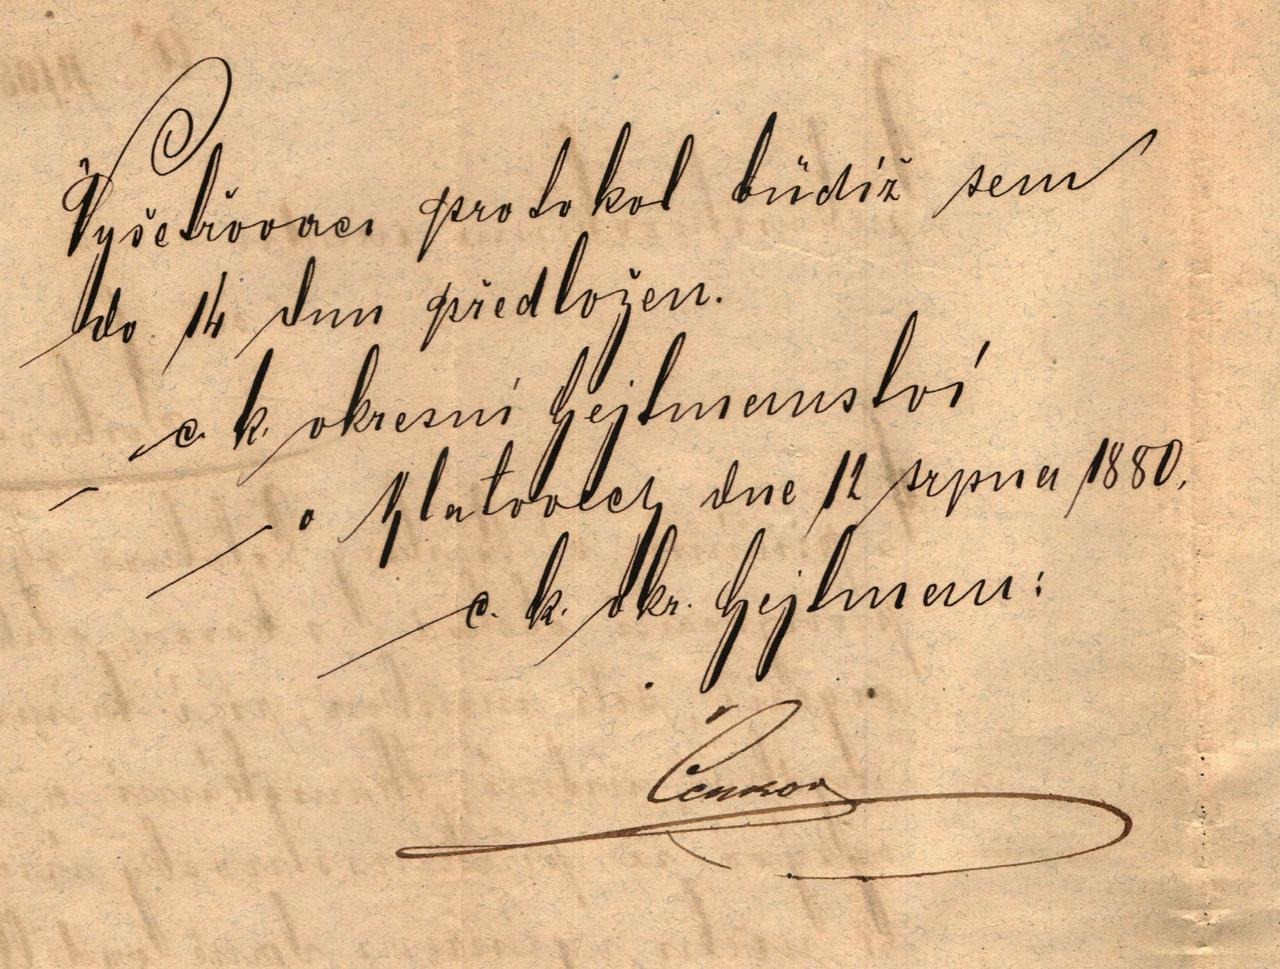 Vyšetřovací protokol büdiž sem
do 14 dnu předložen.
c. k. okresní hejtmanství
v Klatovech dne 12 srpna 1880.
c. k. okr. hejtman: